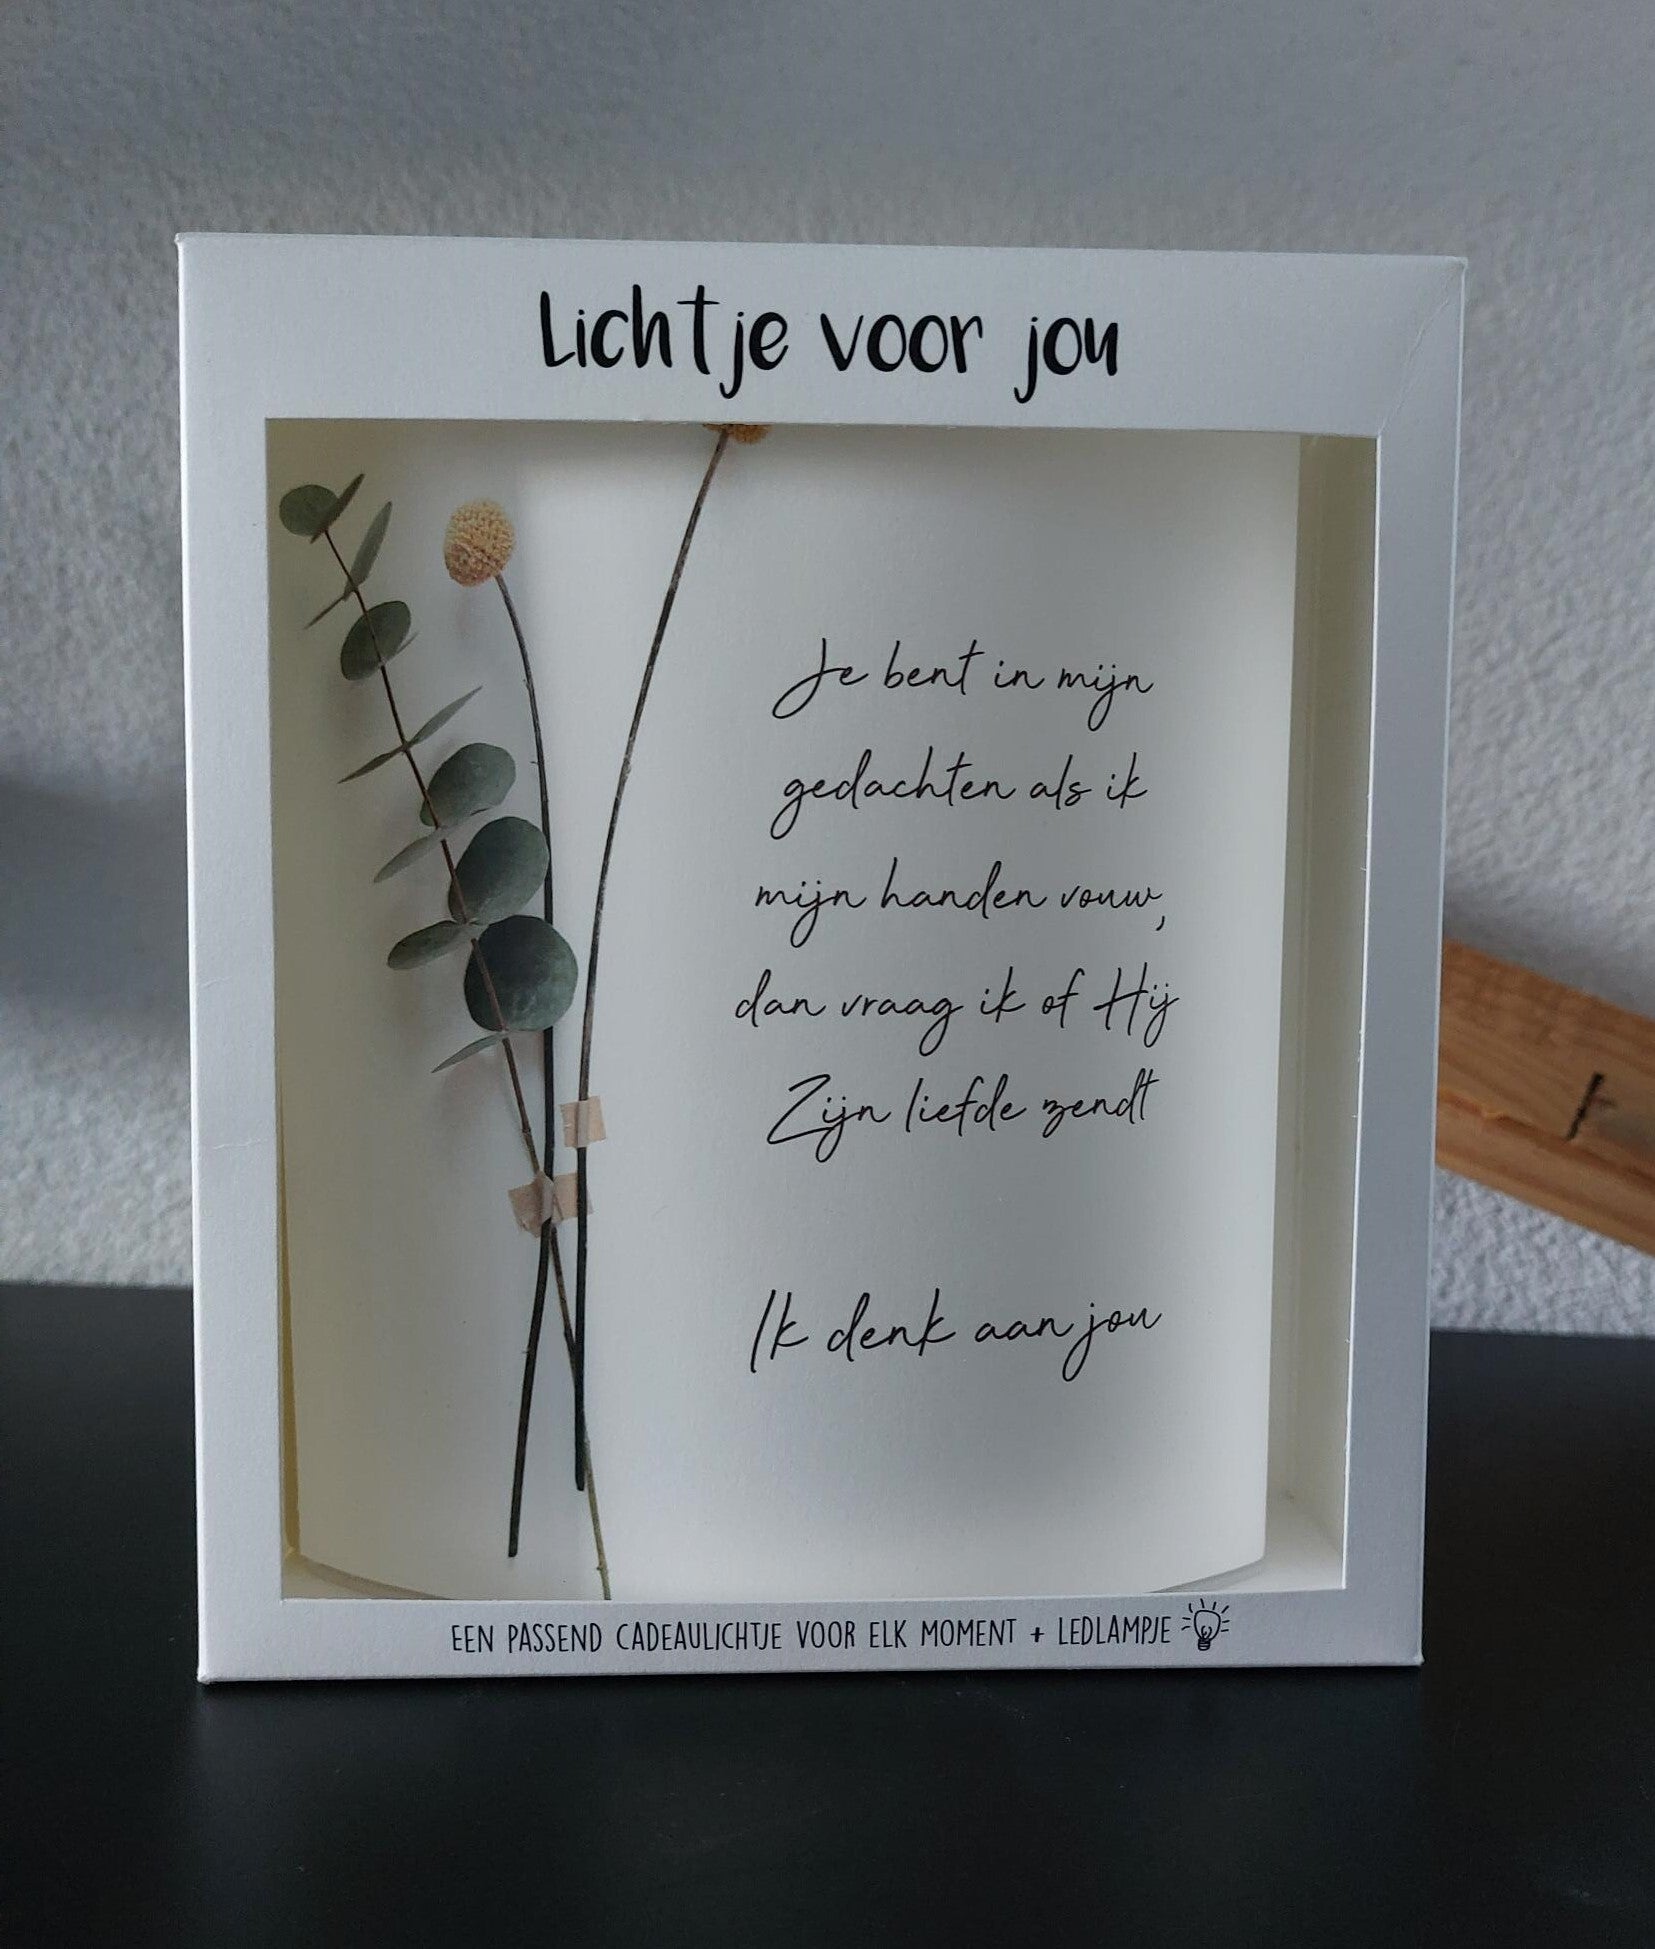 Lichtje voor jou
Je bent in mijn
gedachten als ik
mijn handen vouw,
dan vraag ik of Hij
Zijn liefde zendt
Ik denk aan jou
EEN PASSEND CADEAULICHTJE VOOR ELK MOMENT + LEDLAMPJE